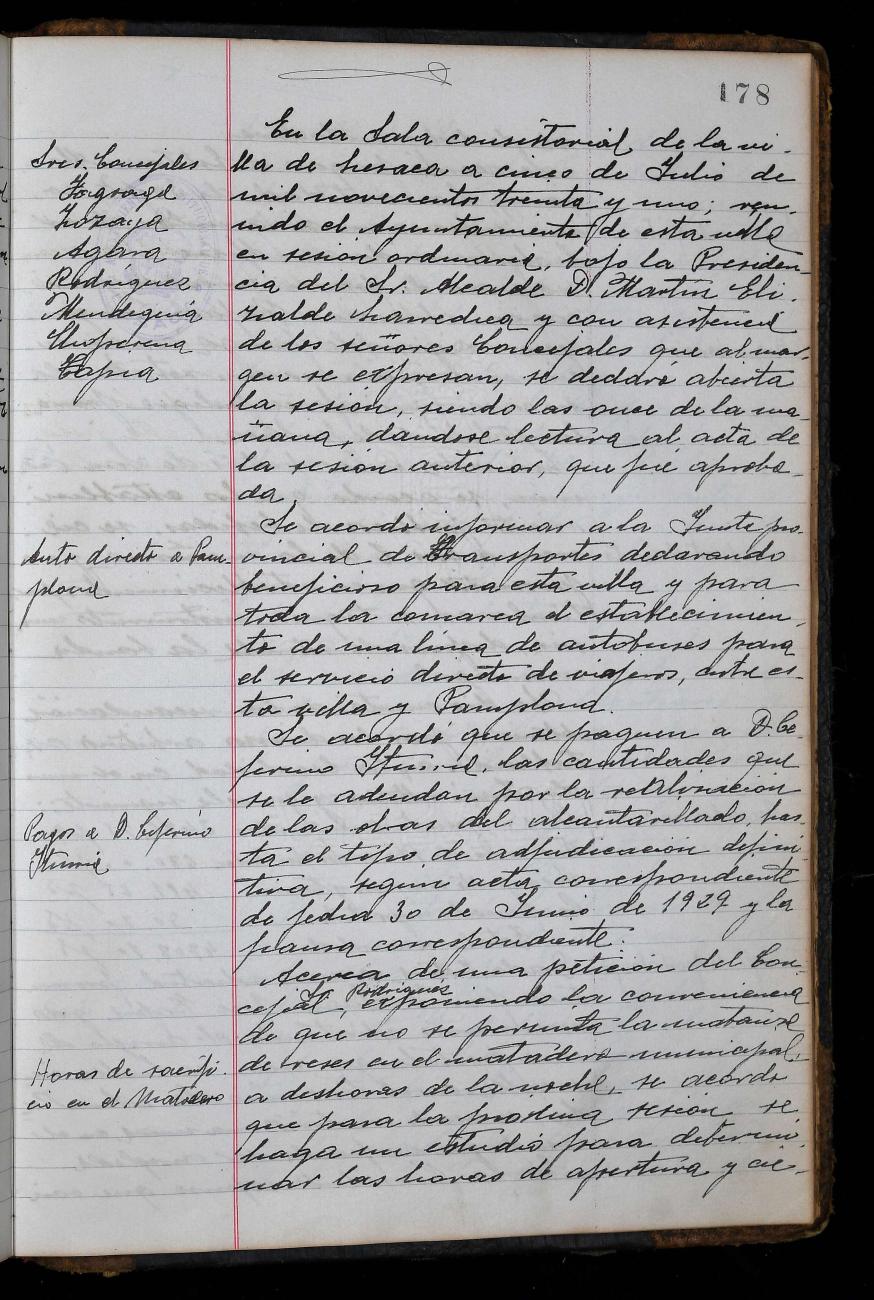 178
En la Sala consistorial de la vi-
lla de Lesaca a cinco de Julio de
mil novecientos treinta y uno; reu-
nido el Ayuntamiento de esta villa
en sesión ordinaria, bajo la Presiden-
cia del Sr. Alcalde D. Martín Eli-
zalde Larredica y con asistencia
de los señores Concejales que al mar-
gen se expresan, se declaró abierta
la sesión, siendo las once de la ma-
ñana, dándose lectura al acta de
la sesión anterior, que fué aproba-
da.
Sres. Concejales
Zozaya
Agara
Rodríguez
Mendeguía
Chuperena
Tapia
Auto directo a Pam-
plona
Se acordó informar a la Junta pro-
vincial de Transportes declarando
beneficioso para esta villa y para
toda la comarca el establecimien-
to de una línea de autobuses para
el servicio directo de viajeros, entre es-
ta villa y Pamplona.
Pagos a D. Ceferino
Iturria
Se acordó que se paguen a D. Ce-
ferino Iturria, las cantidades que
se le adeudan por la realización
de las obras del alcantarillado, has-
ta el tipo de adjudicación defini-
tiva, según acta correspondiente
de fecha 30 de Junio de 1929 y la
fianza correspondiente.
Horas de sacrifi-
cio en el Matadero
Acerca de una petición del Con-
cejal Sr. Rodríguez, exponiendo la conveniencia
de que no se permita la matanza
de reses en el matadero municipal,
a deshoras de la noche, se acordó
que para la próxima sesión se
haga un estudio para determi-
nar las horas de apertura y cie-